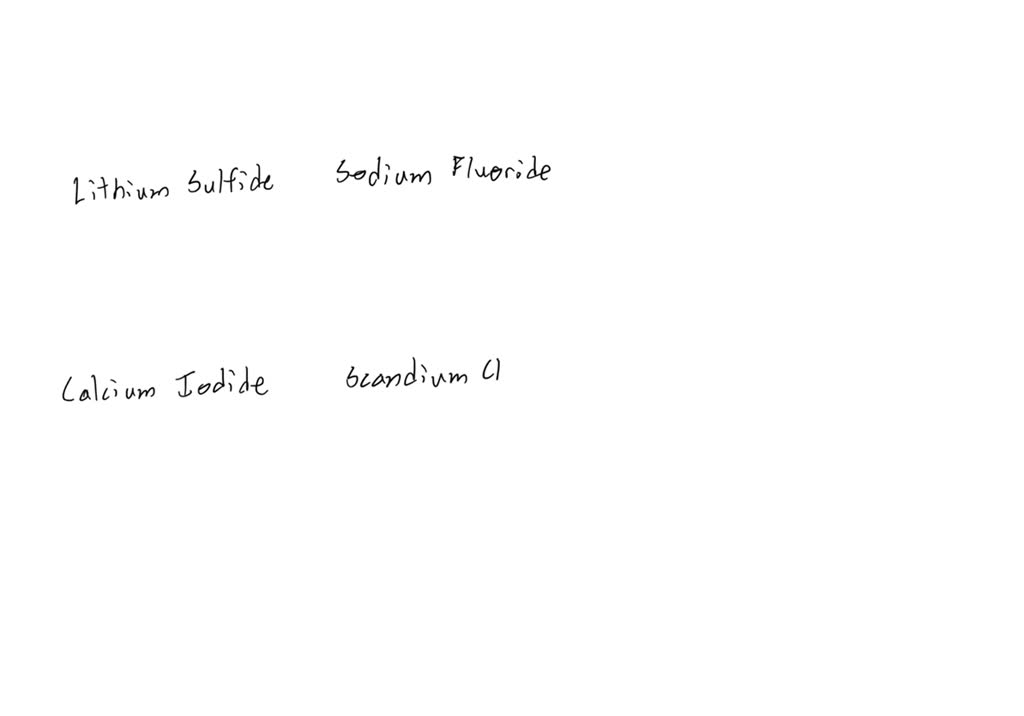 Lithium Sulfide Sodium Fluoride
Calcium Iodide Scandium Cl